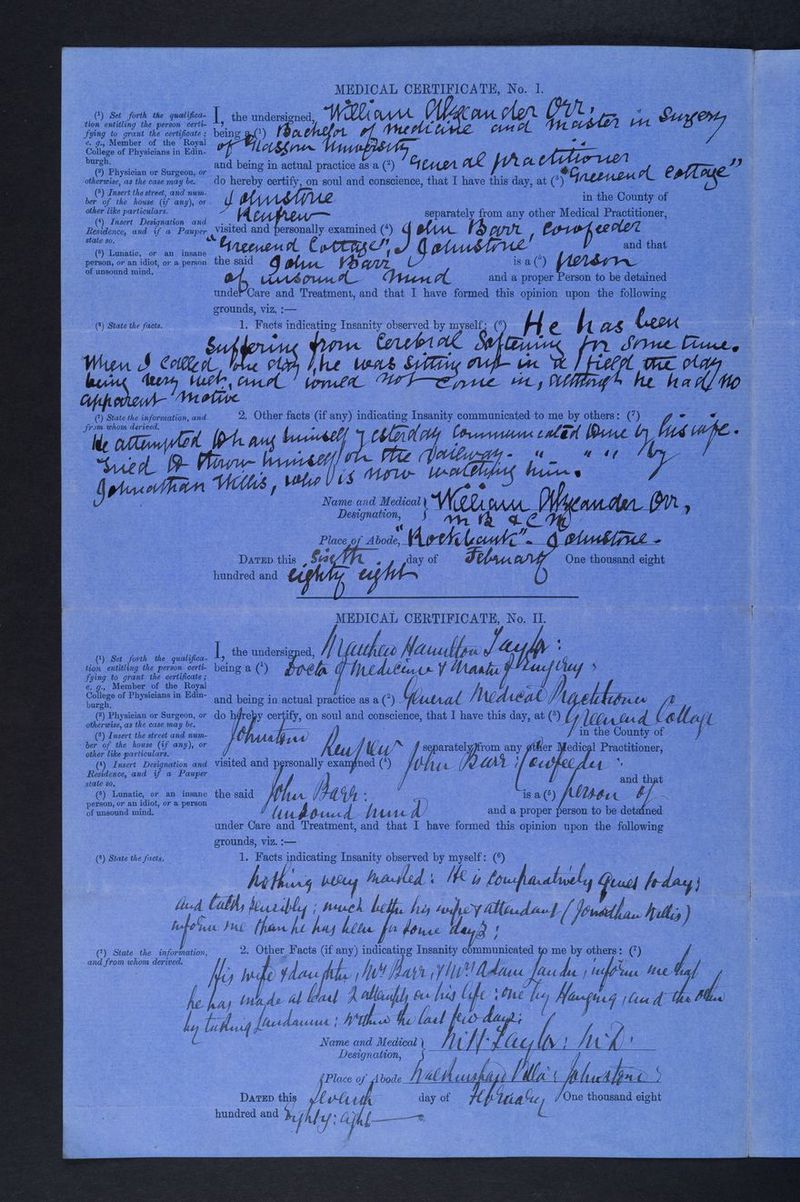 MEDICAL CERTIFICATE, No. I.
(¹) Set forth the qualifica-
tion entitling the person certi-
fying to grant the certificate;
e. g., Member of the Royal
College of Physicians in Edin-
burgh.
(²) Physician or Surgeon, or
otherwise, as the case may be.
(³) Insert the street, and num-
ber of the house (if any), or
other like particulars.
(⁴) Insert Designation and
Residence, and if a Pauper
state so.
(⁵) Lunatic, or an insane
person, or an idiot, or a person
of unsound mind.
I, the undersigned, William Alexander Orr,
being a (¹) Bachelor of Medicine and Master in Surgery
of Glasgow University
and being in actual practice as a (²) General Practitioner
do hereby certify, on soul and conscience, that I have this day, at (³) "Greenend Cottage"
Johnstone in the County of
Renfrew separately from any other Medical Practitioner,
visited and personally examined (⁴) John Barr, Cowfeeder
"Greenend Cottage", Johnstone and that
the said John Barr is a (⁵) person
of unsound mind and a proper Person to be detained
under Care and Treatment, and that I have formed this opinion upon the following
grounds, viz. :—
(⁶) State the facts.
1. Facts indicating Insanity observed by myself: (⁶) He has been
suffering from Cerebral Softening for some time.
When I called one day, he was sitting out in a field the day
being very wet, and would not come in, although he had no
apparent motive
(⁷) State the information, and
from whom derived.
2. Other facts (if any) indicating Insanity communicated to me by others: (⁷)
He attempted to hang himself yesterday Communicated to me by his wife.
Tried to throw himself on the railway. " " " by
Johnathan Willis, who is now watching him.
Name and Medical Designation, William Alexander Orr,
M B & C M
Place of Abode, "Rockbank" - Johnstone -
DATED this Sixth day of February One thousand eight
hundred and eighty eight
MEDICAL CERTIFICATE, No. II.
(¹) Set forth the qualifica-
tion entitling the person certi-
fying to grant the certificate;
e. g., Member of the Royal
College of Physicians in Edin-
burgh.
(²) Physician or Surgeon, or
otherwise, as the case may be.
(³) Insert the street and num-
ber of the house (if any), or
other like particulars.
(⁴) Insert Designation and
Residence, and if a Pauper
state so.
(⁵) Lunatic, or an insane
person, or an idiot, or a person
of unsound mind.
I, the undersigned, Matthew Hamilton Taylor :
being a (¹) Doctor of Medicine & Master of Surgery ;
and being in actual practice as a (²) General Medical Practitioner
do hereby certify, on soul and conscience, that I have this day, at (³) Greenend Cottage
Johnstone in the County of
Renfrew separately from any other Medical Practitioner,
visited and personally examined (⁴) John Barr : Cowfeeder :
and that
the said John Barr : is a (⁵) person of
unsound mind and a proper person to be detained
under Care and Treatment, and that I have formed this opinion upon the following
grounds, viz. :—
(⁶) State the facts.
1. Facts indicating Insanity observed by myself: (⁶)
Nothing very marked : He is comparatively quiet today;
and talks sensibly ; much better his wife & attendant (Jonathan Willis)
inform me than he has been for some days ;
(⁷) State the information,
and from whom derived.
2. Other Facts (if any) indicating Insanity communicated to me by others: (⁷)
His wife & daughter, Mrs Barr, & Mrs Adam , inform me that
he has made at least 2 attempts on his life : one by Hanging, and the other
by taking Laudanum ; within the last few days;
Name and Medical Designation, M H Taylor : M.D :
Place of Abode Johnstone
DATED this Seventh day of February One thousand eight
hundred and Eighty : eight